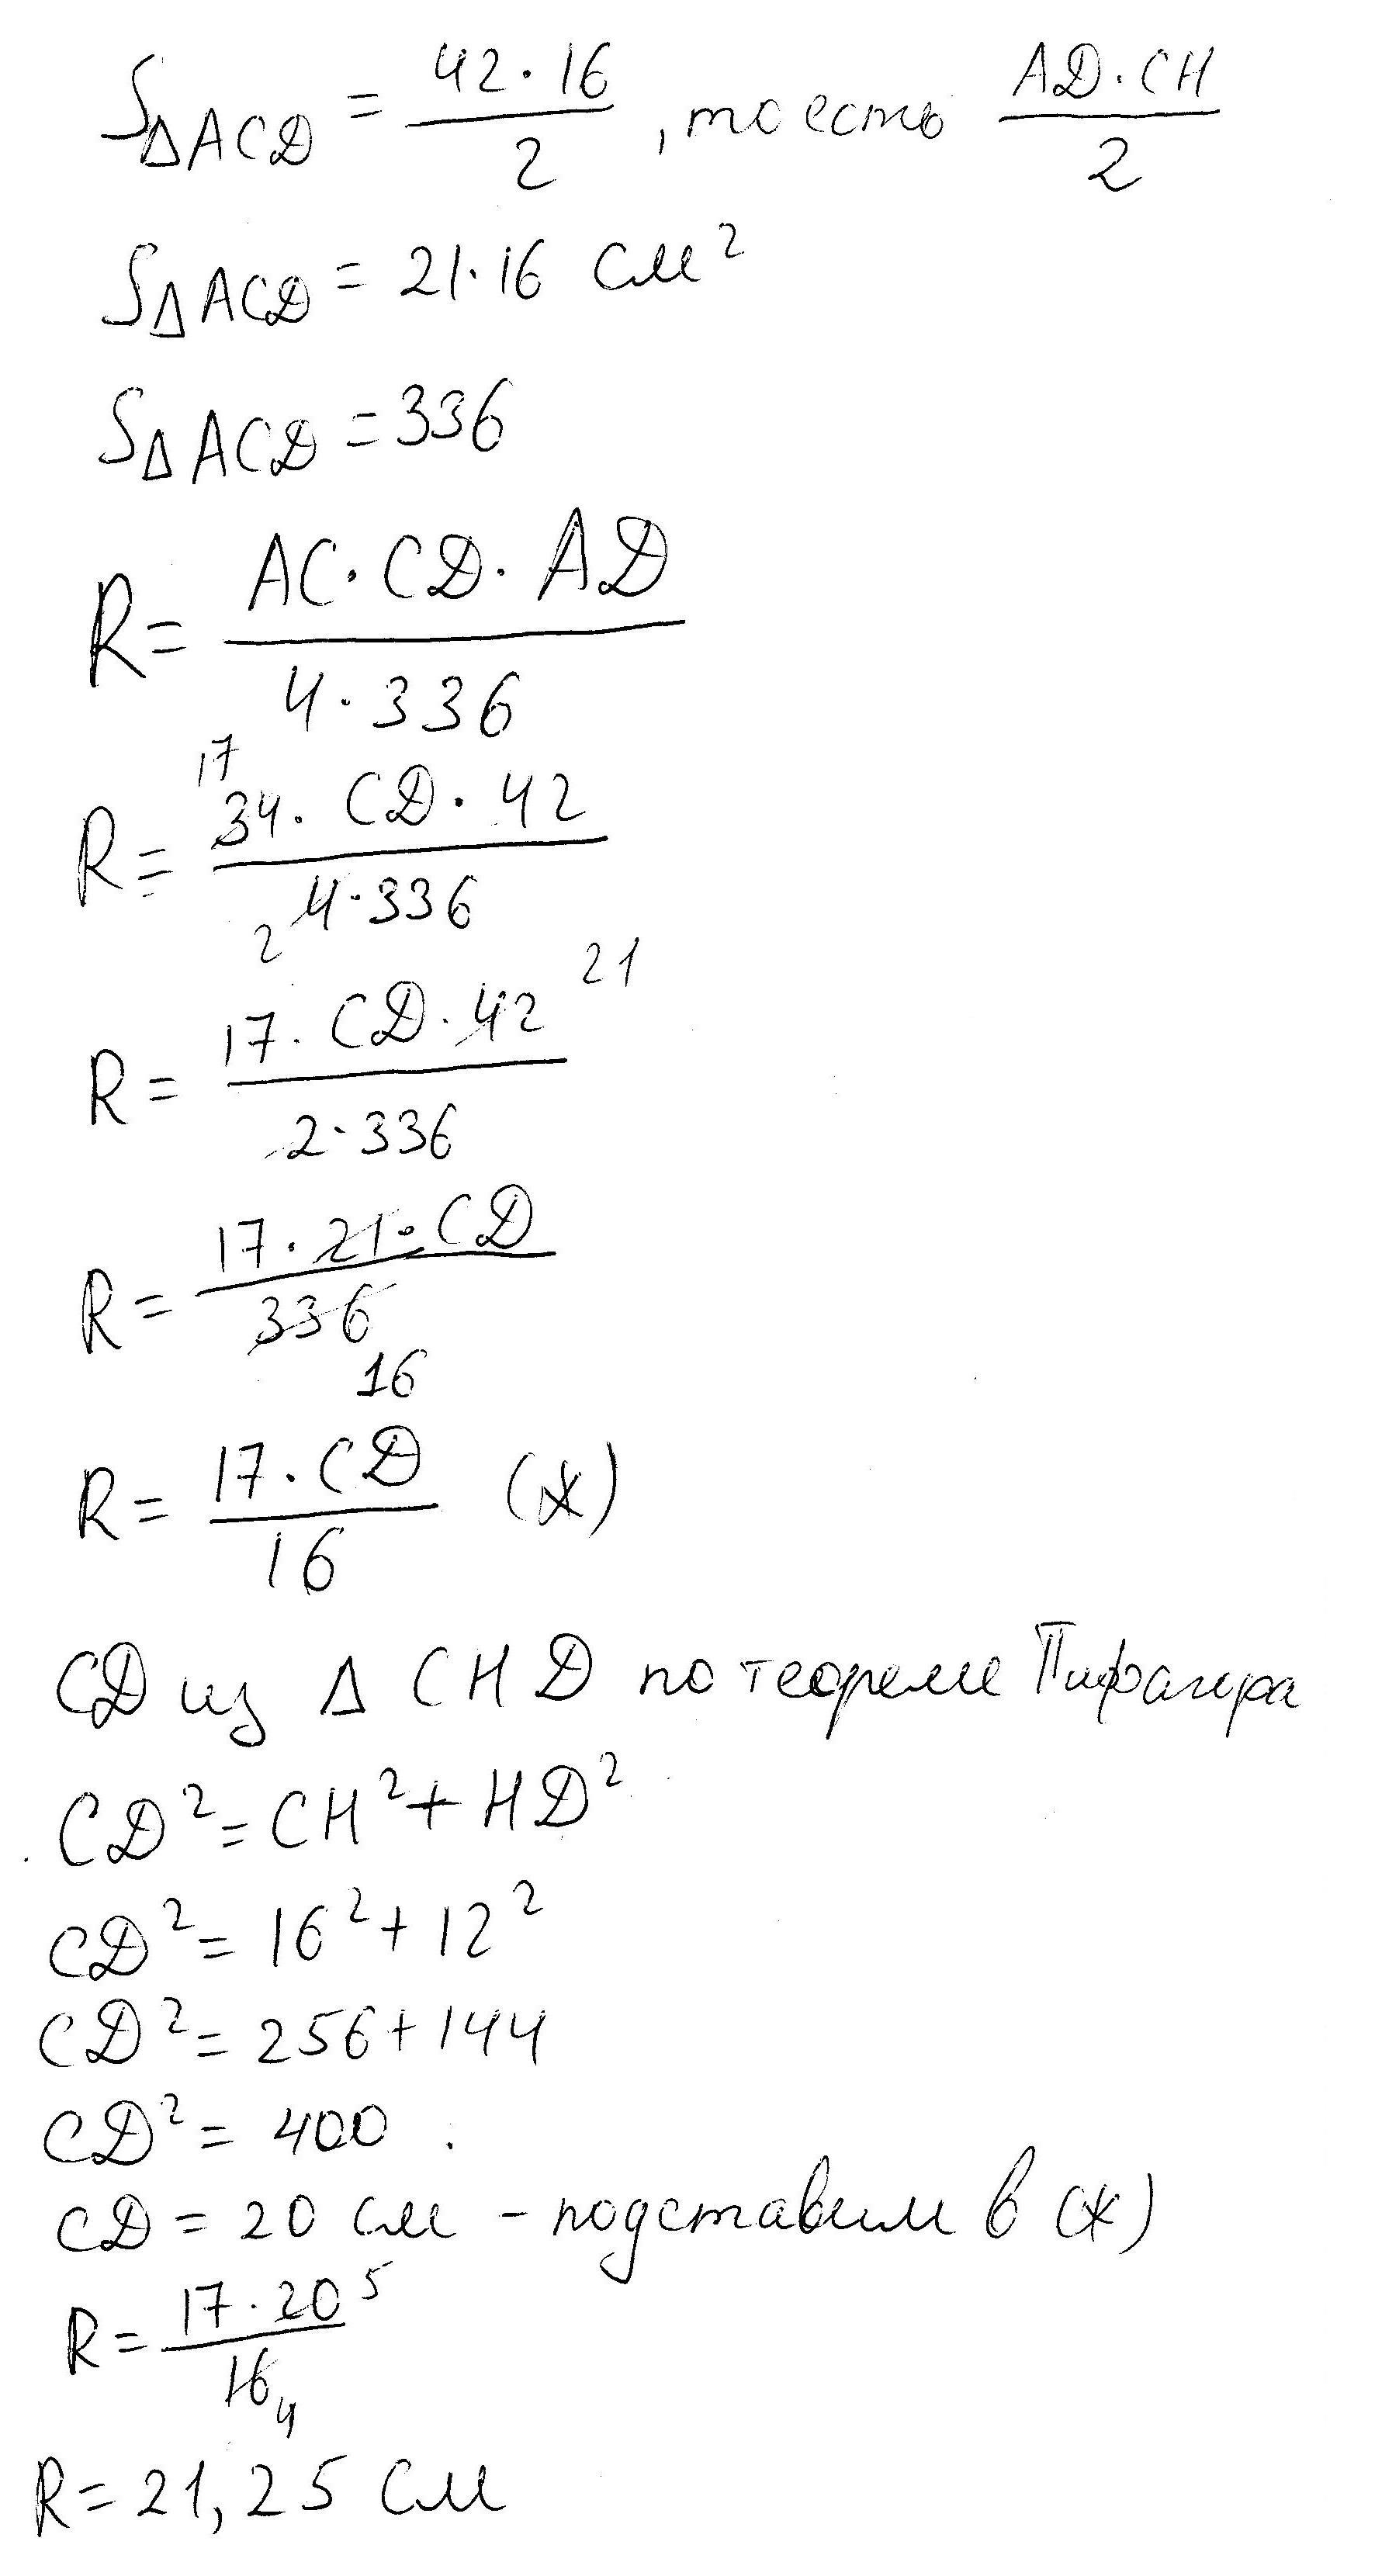 S△ACD = 42·16/2, то есть AD·CH/2
S△ACD = 21·16 см²
S△ACD = 336
R = AC·CD·AD/4·336
R = 34·CD·42/4·336 17 2
R = 17·CD·42/2·336 21
R = 17·21·CD/336 16
R = 17·CD/16 (*)
CD из △ CHD по теореме Пифагора
CD² = CH² + HD²
CD² = 16² + 12²
CD² = 256 + 144
CD² = 400
CD = 20 см - подставим в (*)
R = 17·20/16 5 4
R = 21,25 см